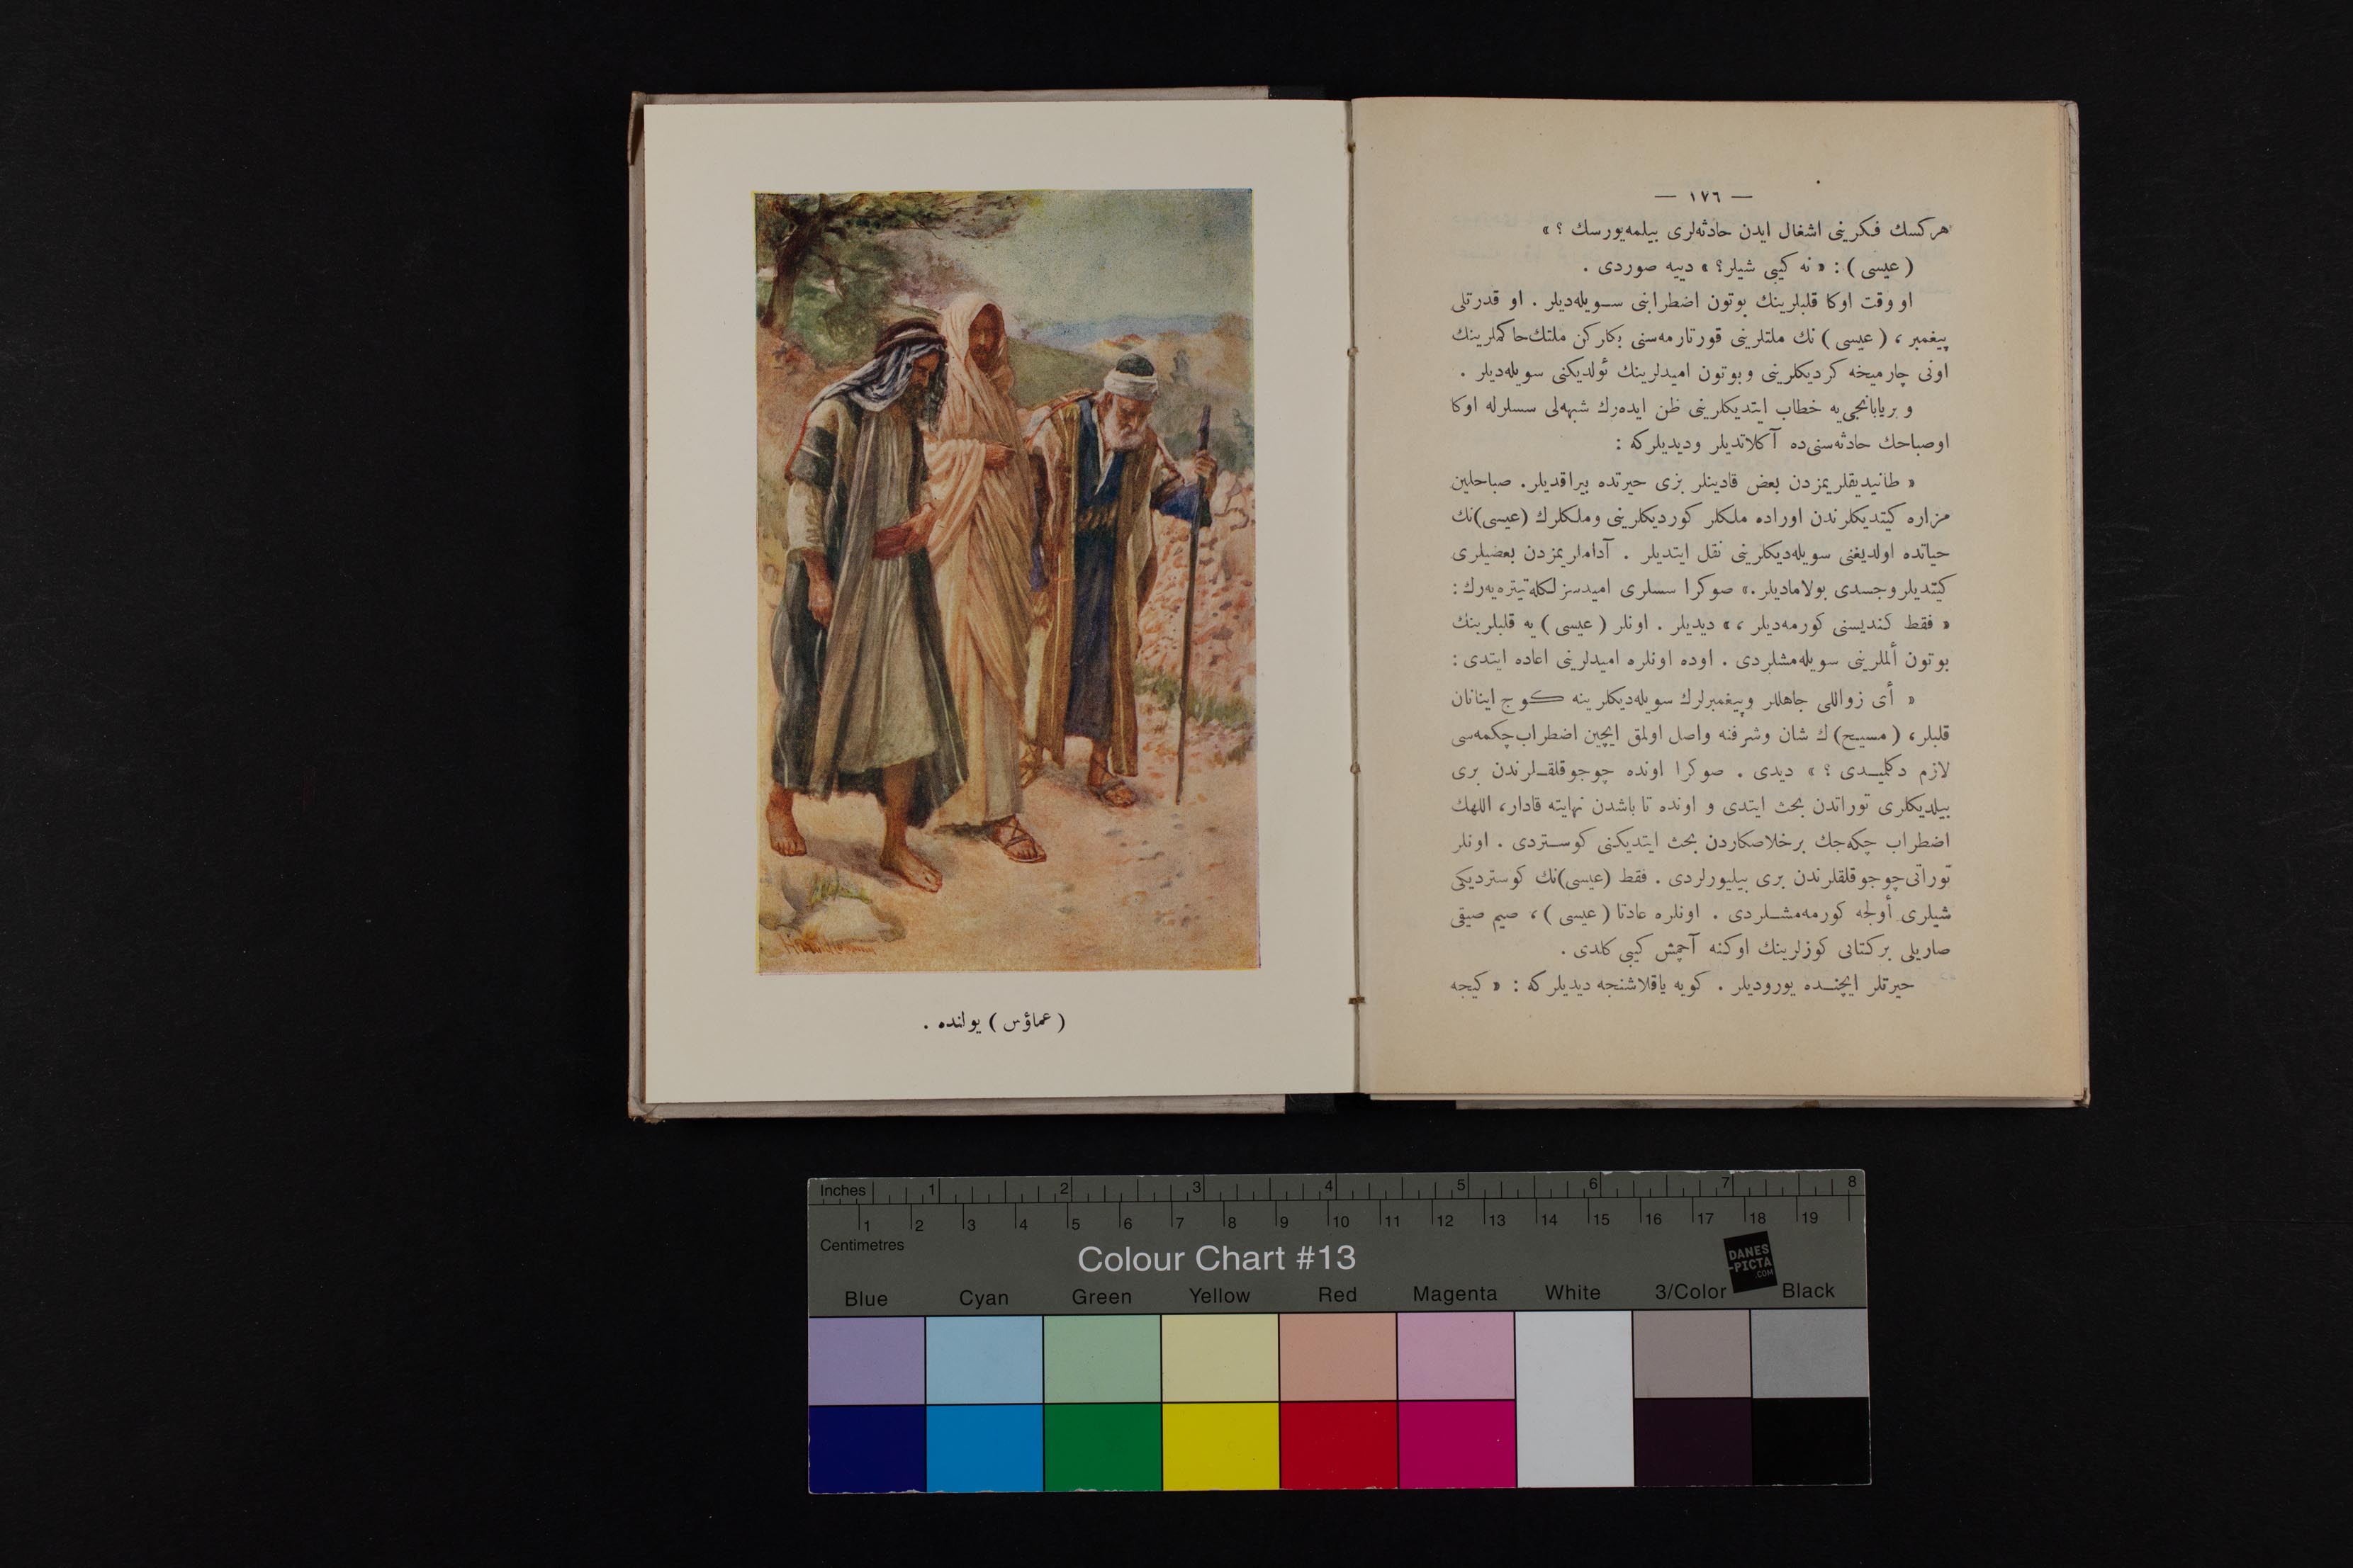 — ١٧٦ —
هركسك فكرينی اشغال ايدن حادثه‌لری بيلمه‌يورسك ؟ »
( عيسی ) : « نه كيبی شيلر؟ » دييه صوردی .
او وقت اوكا قلبلرينك بوتون اضطرابنی سويله‌ديلر . او قدرتلی
پيغمبر ، ( عيسی ) نك ملتلرينی قورتارمه‌سنی بكلركن ملتك حاكملرينك
اونی چارميخه كرديكلرينی و بوتون اميدلرينك ئولديكنی سويله‌ديلر .
و بر يابانجی‌يه خطاب ايتديكلرينی ظن ايده‌رك شبهه‌لی سسلرله اوكا
اوصباحك حادثه‌سنی‌ده آكلاتديلر وديديلركه :
« طانيديقلريمزدن بعض قادينلر بزی حيرتده بيراقديلر. صباحلين
مزاره كيتديكلرندن اوراده ملكلر كورديكلرينی وملكلرك (عيسی)نك
حياتده اولديغنی سويله‌ديكلرينی نقل ايتديلر . آداملريمزدن بعضيلری
كيتديلر وجسدی بولاماديلر.» صوكرا سسلری اميدسزلكله تيتره‌يه‌رك :
« فقط كنديسنی كورمه‌ديلر ، » ديديلر . اونلر ( عيسی ) يه قلبلرينك
بوتون ألملرينی سويله‌مشلردی . اوده اونلره اميدلرينی اعاده ايتدی :
« أی زواللی جاهللر وپيغمبرلرك سويله‌ديكلرينه كوج اينانان
قلبلر، ( مسيح) ك شان وشرفنه واصل اولمق ايچين اضطراب چكمه‌سی
لازم دكلميدی ؟ » ديدی . صوكرا اونده چوجوقلقلرندن بری
بيلديكلری توراتدن بحث ايتدی و اونده تا باشدن نهايته قادار، اللهك
اضطراب چكه‌جك برخلاصكاردن بحث ايتديكنی كوستردی . اونلر
توراتی چوجوقلقلرندن بری بيليورلردی . فقط (عيسی)نك كوسترديكی
شيلری أولجه كورمه‌مشلردی . اونلره عادتا ( عيسی ) ، صيم صيقی
صاريلی بر كتابی كوزلرينك اوكنه آچمش كيبی كلدی .
حيرتلر ايچنده يوروديلر . كويه ياقلاشنجه ديديلر كه : « كيجه
( عماؤس ) يولنده .
Inches 1 2 3 4 5 6 7 8
1 2 3 4 5 6 7 8 9 10 11 12 13 14 15 16 17 18 19
Centimetres
Colour Chart #13
DANES
-PICTA
.COM
Blue Cyan Green Yellow Red Magenta White 3/Color Black